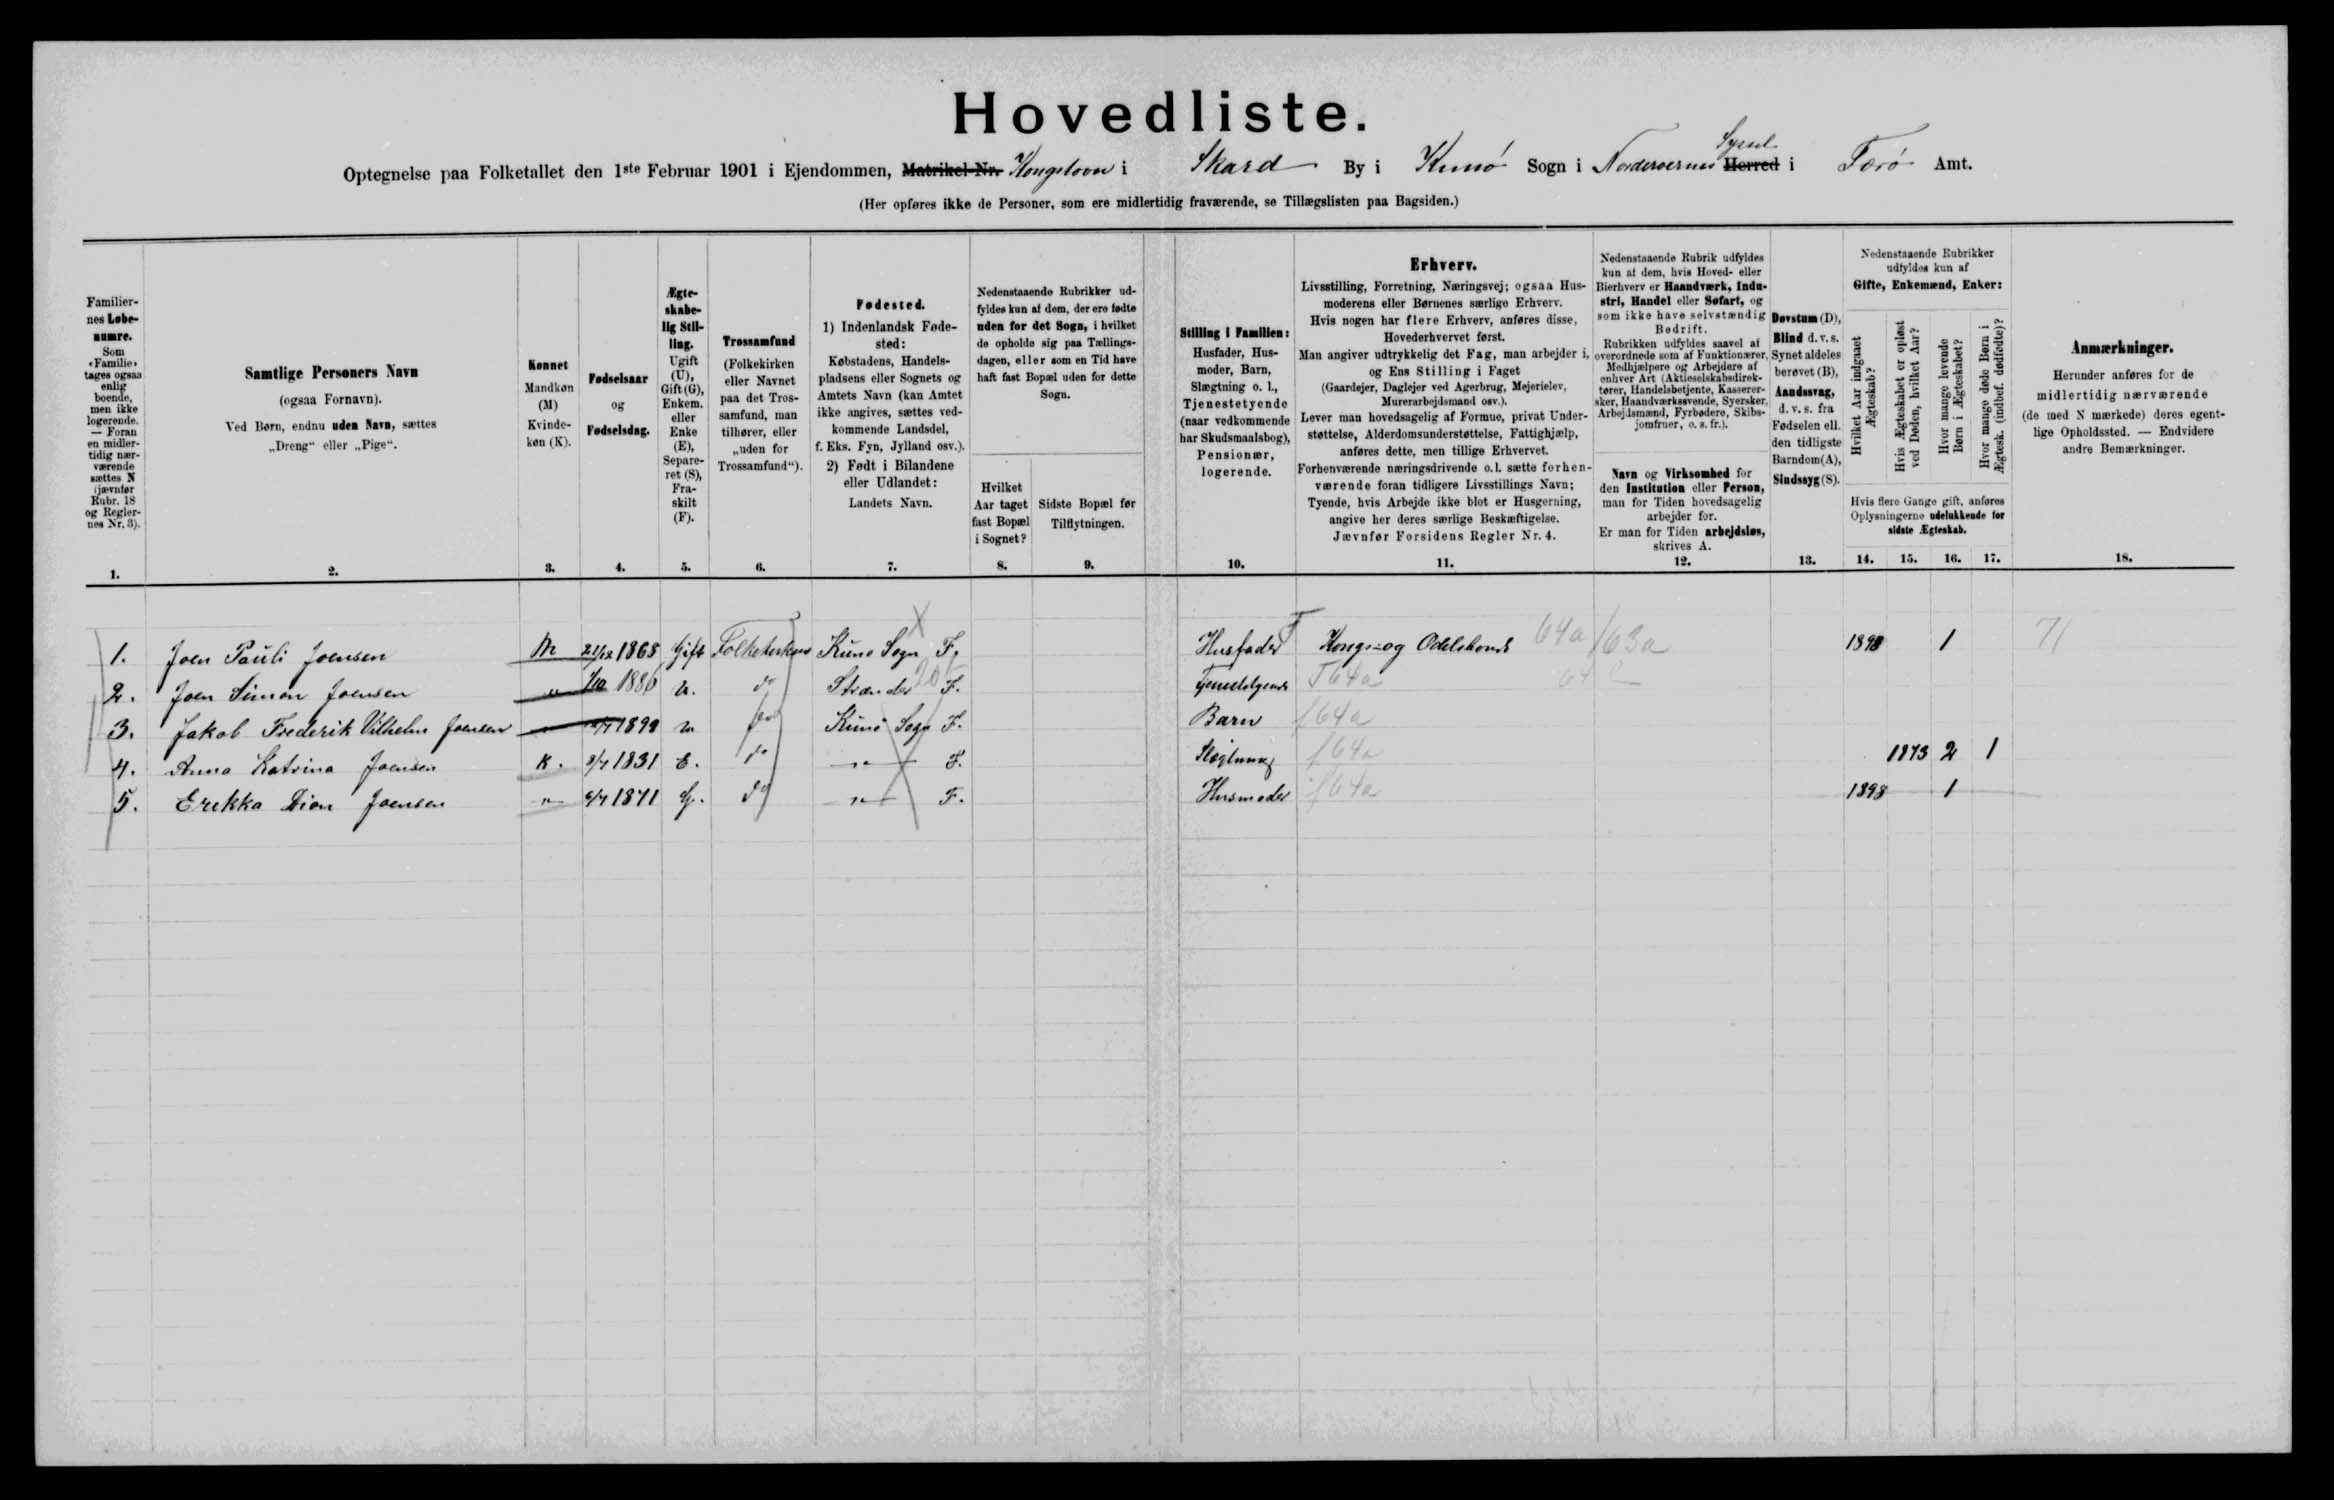 Hovedliste.
Optegnelse paa Folketallet den 1ste Februar 1901 i Ejendommen, Matrikel-Nr. i Skard By i Kunø Sogn i Norderoernes Herred Syssel i Færø Amt.
(Her opføres ikke de Personer, som ere midlertidig fraværende, se Tillægslisten paa Bagsiden.)
Familier-
nes Løbe-
numre.
Som
«Familie»
tages ogsaa
enlig
boende,
men ikke
logerende.
— Foran
en midler-
tidig nær-
værende
sættes N
(jævnfør
Rubr. 18
og Regler-
nes Nr. 3).
1.
Samtlige Personers Navn
(ogsaa Fornavn).
Ved Børn, endnu uden Navn, sættes
„Dreng“ eller „Pige“.
2.
Kønnet
Mandkøn
(M)
Kvinde-
køn (K).
3.
Fødselsaar
og
Fødselsdag.
4.
Ægte-
skabe-
lig Stil-
ling.
Ugift
(U),
Gift (G),
Enkem.
eller
Enke
(E),
Separe-
ret (S),
Fra-
skilt
(F).
5.
Trossamfund
(Folkekirken
eller Navnet
paa det Tros-
samfund, man
tilhører, eller
„uden for
Trossamfund“).
6.
Fødested.
1) Indenlandsk Føde-
sted:
Købstadens, Handels-
pladsens eller Sognets og
Amtets Navn (kan Amtet
ikke angives, sættes ved-
kommende Landsdel,
f. Eks. Fyn, Jylland osv.).
2) Født i Bilandene
eller Udlandet:
Landets Navn.
7.
Nedenstaaende Rubrikker ud-
fyldes kun af dem, der ere fødte
uden for det Sogn, i hvilket
de opholde sig paa Tællings-
dagen, eller som en Tid have
haft fast Bopæl uden for dette
Sogn.
Hvilket
Aar taget
fast Bopæl
i Sognet?
8.
Sidste Bopæl før
Tilflytningen.
9.
Stilling i Familien:
Husfader, Hus-
moder, Barn,
Slægtning o. l.,
Tjenestetyende
(naar vedkommende
har Skudsmaalsbog),
Pensionær,
logerende.
10.
Erhverv.
Livsstilling, Forretning, Næringsvej; ogsaa Hus-
moderens eller Børnenes særlige Erhverv.
Hvis nogen har flere Erhverv, anføres disse,
Hovederhvervet først.
Man angiver udtrykkelig det Fag, man arbejder i,
og Ens Stilling i Faget
(Gaardejer, Daglejer ved Agerbrug, Mejerielev,
Murerarbejdsmand osv.).
Lever man hovedsagelig af Formue, privat Under-
støttelse, Alderdomsunderstøttelse, Fattighjælp,
anføres dette, men tillige Erhvervet.
Forhenværende næringsdrivende o. l. sætte forhen-
værende foran tidligere Livsstillings Navn;
Tyende, hvis Arbejde ikke blot er Husgerning,
angive her deres særlige Beskæftigelse.
Jævnfør Forsidens Regler Nr. 4.
11.
Nedenstaaende Rubrik udfyldes
kun af dem, hvis Hoved- eller
Bierhverv er Haandværk, Indu-
stri, Handel eller Søfart, og
som ikke have selvstændig
Bedrift.
Rubrikken udfyldes saavel af
overordnede som af Funktionærer,
Medhjælpere og Arbejdere af
enhver Art (Aktieselskabsdirek-
tører, Handelsbetjente, Kasserer-
sker, Haandværkssvende, Syersker,
Arbejdsmænd, Fyrbødere, Skibs-
jomfruer, o. s. fr.).
Navn og Virksomhed for
den Institution eller Person,
man for Tiden hovedsagelig
arbejder for.
Er man for Tiden arbejdsløs,
skrives A.
12.
Døvstum (D),
Blind d. v. s.
Synet aldeles
berøvet (B),
Aandssvag,
d. v. s. fra
Fødselen ell.
den tidligste
Barndom (A),
Sindssyg (S).
13.
Nedenstaaende Rubrikker
udfyldes kun af
Gifte, Enkemænd, Enker:
Hvilket Aar indgaaet
Ægteskab?
Hvis Ægteskabet er opløst
ved Døden, hvilket Aar?
Hvor mange levende
Børn i Ægteskabet?
Hvor mange døde Børn i
Ægtesk. (indbef. dødfødte)?
Hvis flere Gange gift, anføres
Oplysningerne udelukkende for
sidste Ægteskab.
14. 15. 16. 17.
Anmærkninger.
Herunder anføres for de
midlertidig nærværende
(de med N mærkede) deres egent-
lige Opholdssted. — Endvidere
andre Bemærkninger.
18.
1. Joen Pauli Joensen M 21/12 1868 Gift Folkekirken Kunø Sogn F. Husfader Kongs- og Odelsbonde 64a/63a 1898 1 71
2. Joen Simon Joensen " 1880 U. do F. T64a
3. Jakob Frederik Vilhelm Joensen 1899 U Kunø Sogn F. Barn f64a
4. Anna Katrina Joensen K. 1831 E. do " F. Slægtning f64a 1873 2 1
5. Erekka Dion Joensen " 1871 G. do " F. Husmoder f64a 1898 1